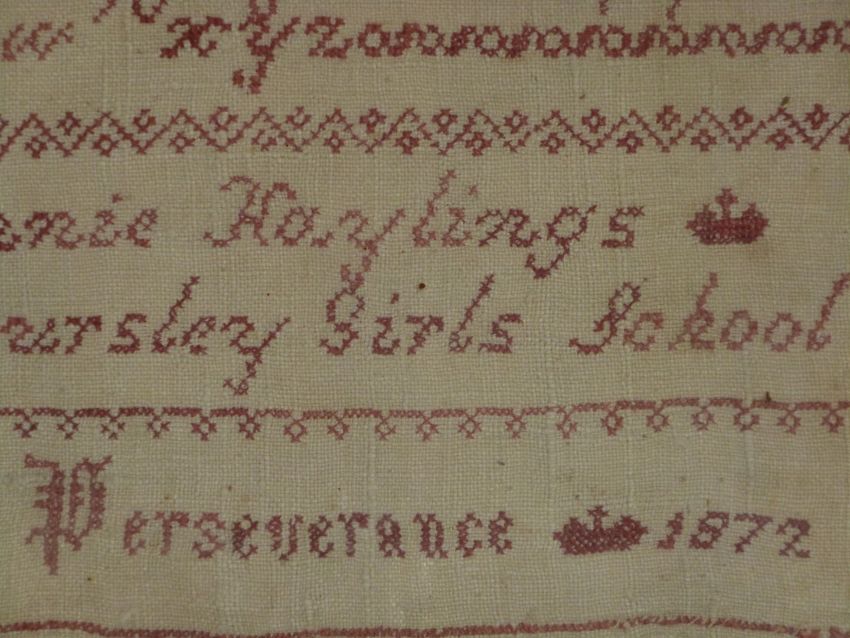 w xyz
nie Haylings
ursley Girls School
Perseverance 1872